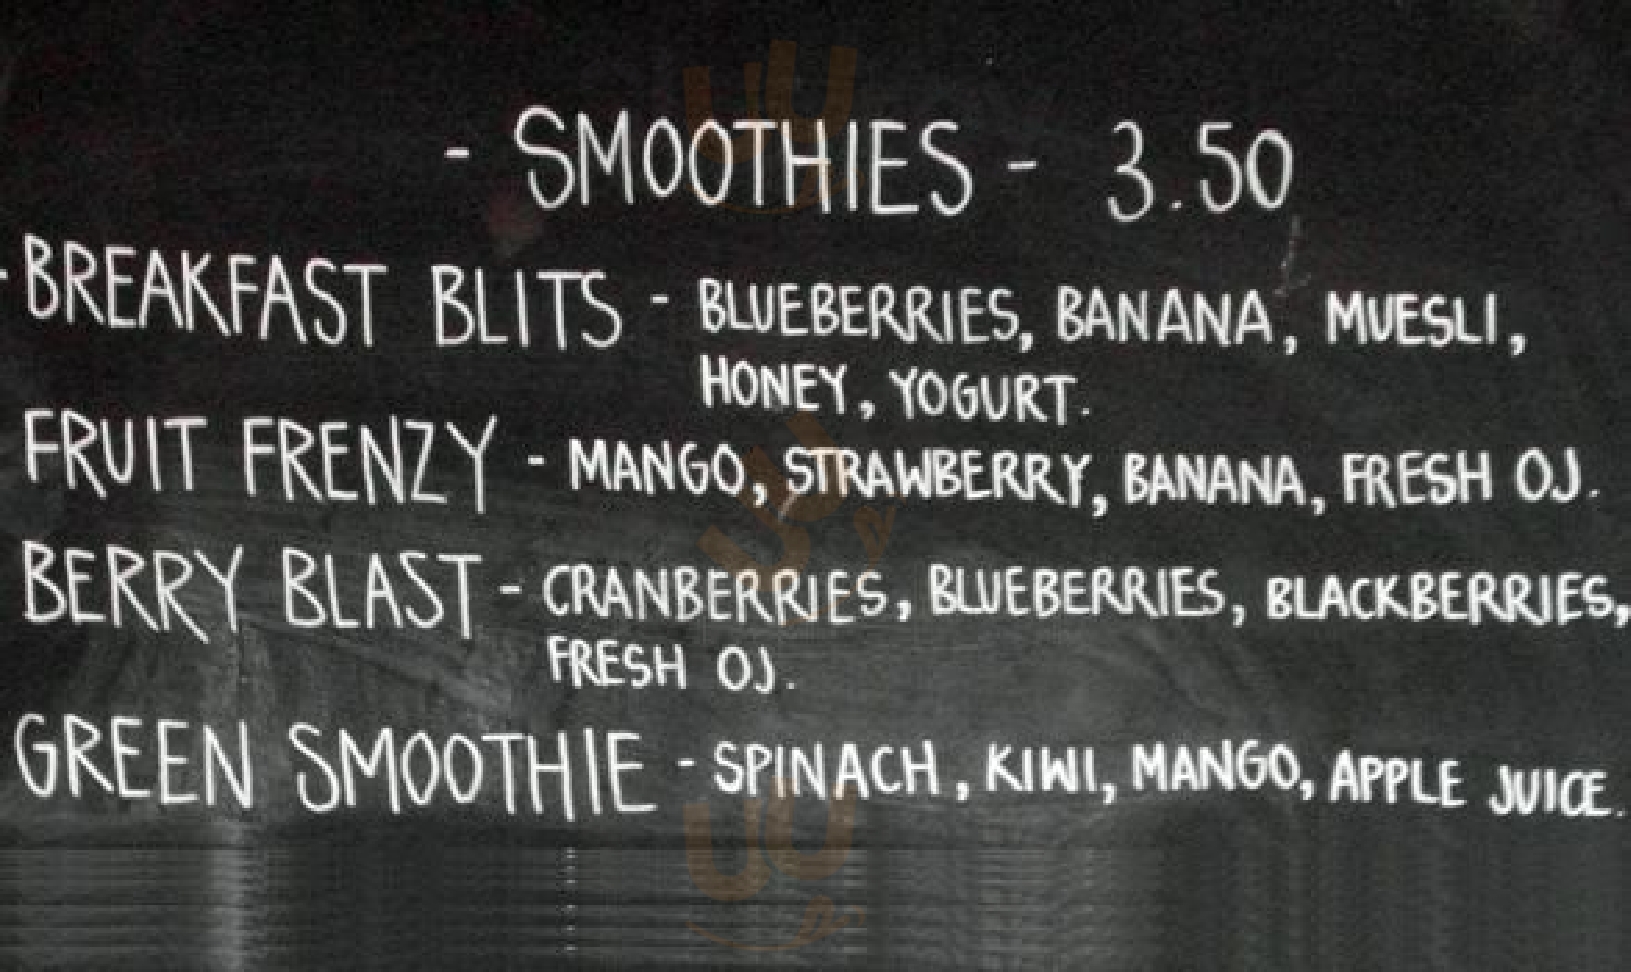 - SMOOTHIES - 3.50
- BREAKFAST BLITS - BLUEBERRIES, BANANA, MUESLI,
HONEY, YOGURT.
FRUIT FRENZY - MANGO, STRAWBERRY, BANANA, FRESH OJ.
BERRY BLAST - CRANBERRIES, BLUEBERRIES, BLACKBERRIES,
FRESH OJ.
GREEN SMOOTHIE - SPINACH, KIWI, MANGO, APPLE JUICE.